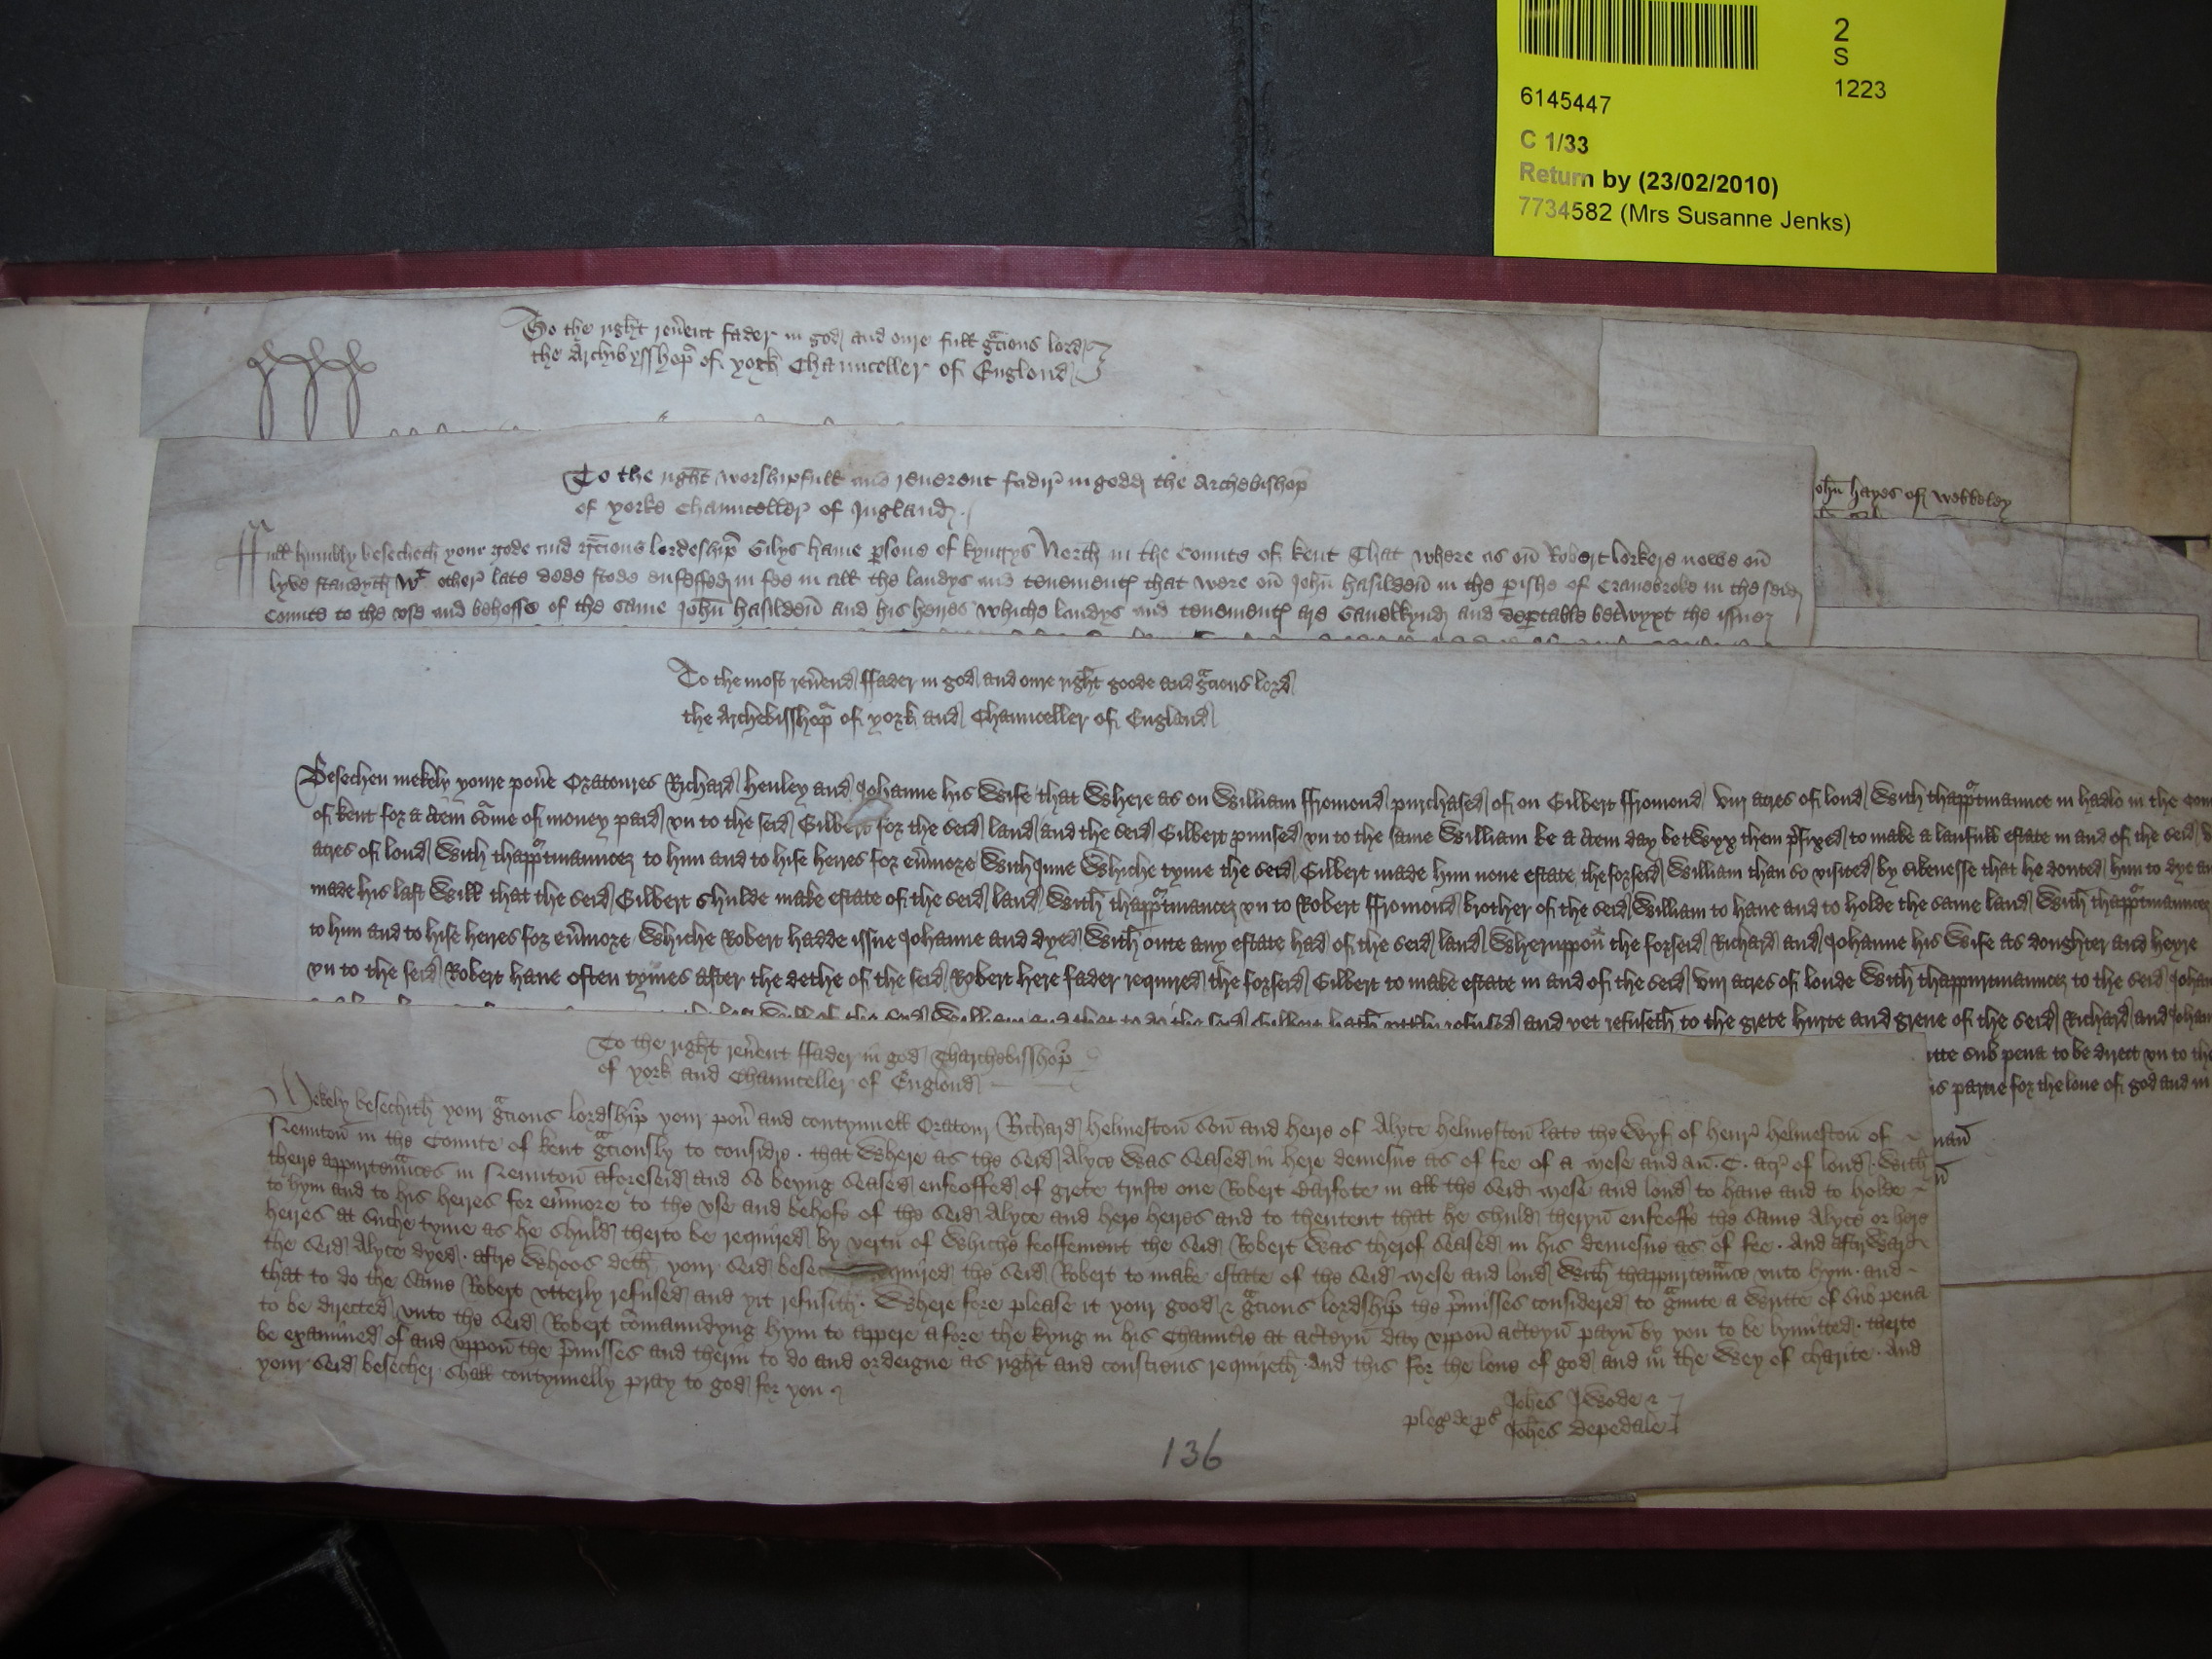 2
S
1223
6145447
C 1/33
Return by (23/02/2010)
7734582 (Mrs Susanne Jenks)
To the right reu̅ent fader in god and oure full gcious lord
the Archibysshop of york Chaunceller of Englond
To the right worshipfull and reuerent fadir in godd the Archebishop
of yorke Chaunceller of Ingland
John hayes of
ffull humbly besecheth your gode and gcious lordeship Gilys hame psone of kyngys North in the Counte of kent That where as on Robert lorkere nowe on
lyve standyth wt other late dede stode enfeffed in fee in all the landys and tenement that were on John hasilden in the pishe of Cranebroke in the seid
Counte to the vse and behoffe of the same John hasilden and his heires whiche landys and tenement are Gauelkynd and deptable betwyxt the issuez
To the most reu̅end ffader in god and oure right goode and gcious lord
the Archebisshop of york and Chaunceller of England
Besechen mekely youre pou̅e Oratoures Richard henley and Johanne his Wife that Where as on William ffromond purchased of on Gilbert ffromond viij acres of lond With thapptinaunce in hadlo in the
of kent for a c̅tein some of money paid vn to the seid Gilbert for the seid land and the seid Gilbert pmised vn to the same William be a c̅tein day betwyx them pfixed to make a laufull estate in and of the seid
acres of lond With thapptinauncez to him and to hise heires for eu̅more WithInne Whiche tyme the seid Gilbert made him none estate the forseid William than so visited by sikenesse that he douted him to dye
made his last Will that the seid Gilbert shulde make estate of the seid land With thapptinancez vn to Robert ffromond brother of the seid William to haue and to holde the same land With thapptinauncez
to him and to hise heires for eu̅more Whiche Robert hadde issue Johanne and dyed With oute any estate had of the seid land Wheruppon the forseid Richard and Johanne his Wife as doughter and heyre
vn to the seid Robert haue often tymes after the dethe of the seid Robert here fader required the forseid Gilbert to make estate in and of the seid viij acres of londe With thappurtinauncez to the seid
the last Will of the seid William and that to do the seid Gilbert hath vtt̅ly refused and yet refuseth to the grete hurte and greue of the seid Richard and
sub pena to be direct vn to
partie for the loue of god and in
To the right reu̅ent ffader in god Tharchebisshop
of york and Chaunceller of Englond
Mekely besechith your gcious lordship your pou̅ and contynuell Oratour Richard helmeston son and heire of Alyce helmeston late the wyf of henr helmeston of
Neunton in the Comite of kent gciously to considre . that Where as the seid Alyce Was seased in here demesne as of fee of a mese and an . C . acr of lond . With
theire appurtenaces in Neunton aforeseid and so beyng seased enfeoffed of grete truste one Robert darfote in all the seid mese and lond to haue and to holde
to hym and to his heires for eu̅more to the vse and behofe of the seid Alyce and here heires and to thentent that he shuld theryn enfeoffe the same Alyce or here
heires at suche tyme as he shuld therto be required by vertu of Whiche feoffement the seid Robert Was therof seased in his demesne as of fee . And aftirward
the seid Alyce dyed . aftre Whoos deth your seid required the seid Robert to make estate of the seid mese and lond With thappurtenace vnto hym . and
that to do the same Robert vtterly refused and yit refusith . Where fore please it your good & gcious lordship the pmisses considered to gunte a Writte of sub pena
to be directed vnto the seid Robert comaundyng hym to appere a fore the kyng in his Chauncie at a c̅teyn day vppon a c̅teyn payn by you to be lymitted . therto
be examined of and vppon the pmisses and therin to do and ordeigne as right and consciens requireth . And this for the loue of god and in the Wey of charite . And
your seid besecher shall contynuelly pray to god for you
pleg de ps Johes Wode
Johes depedale
136